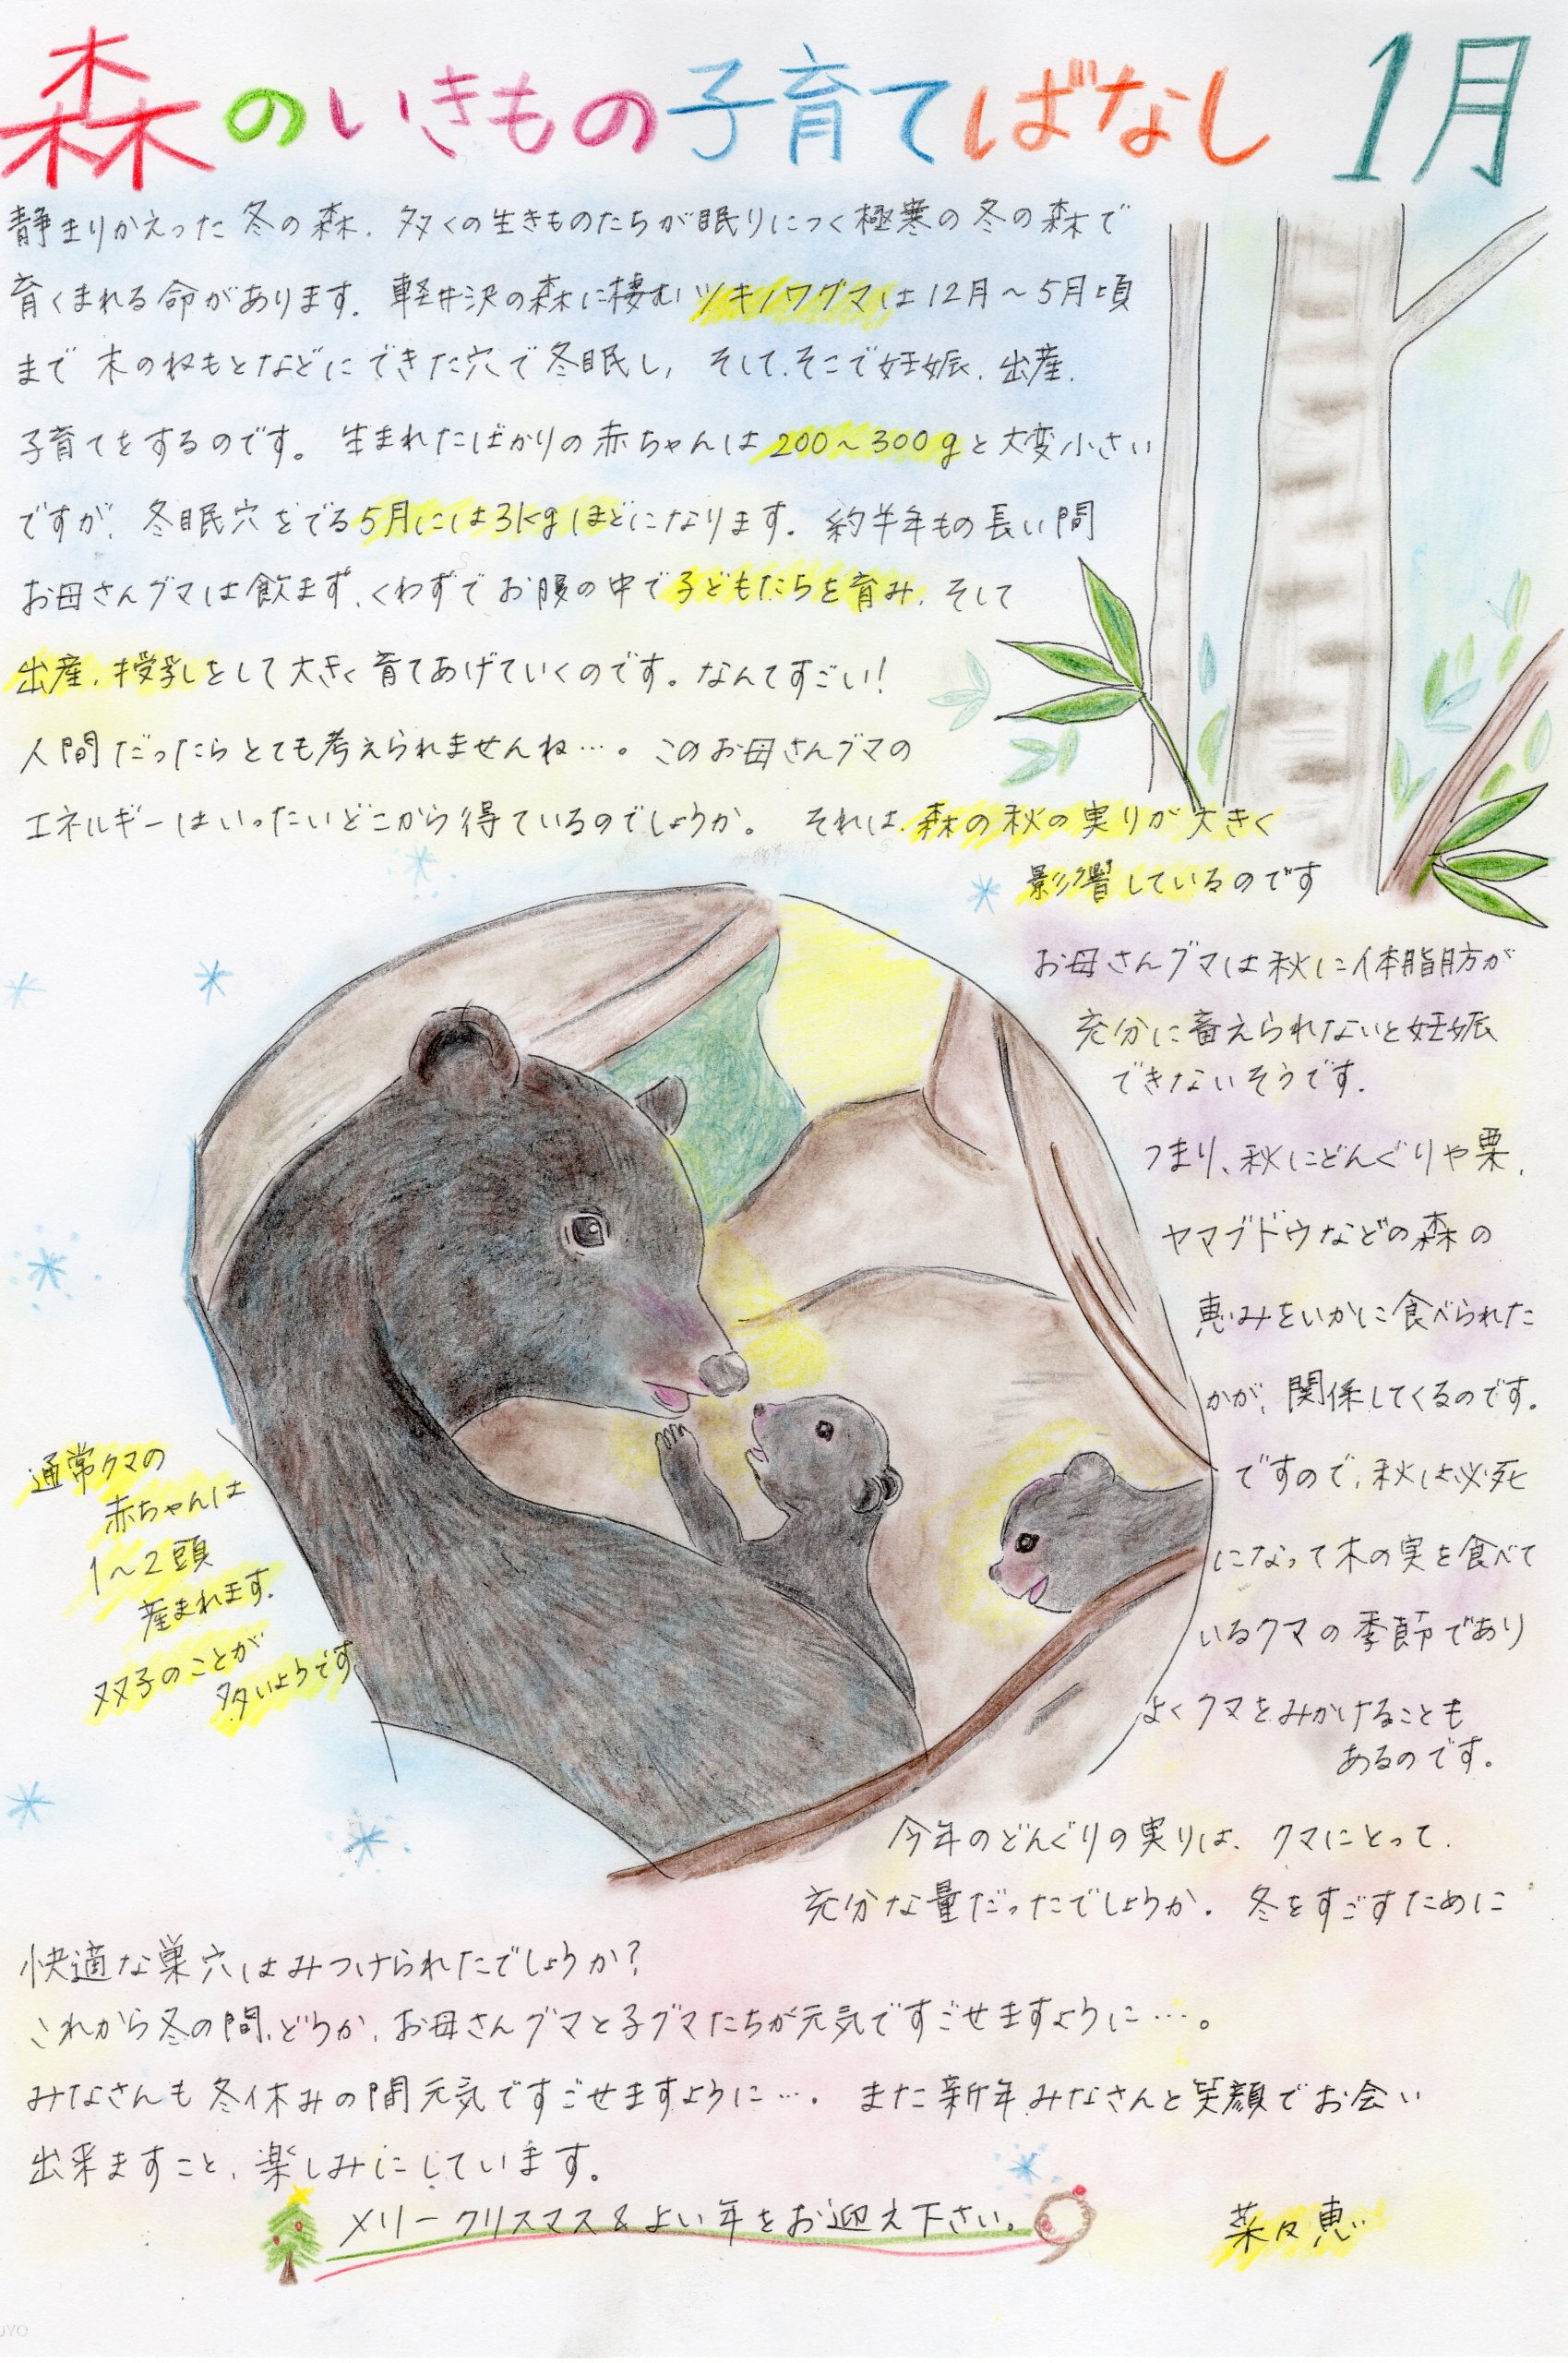 森のいきもの子育てばなし 1月
静まりかえった冬の森、多くの生きものたちが眠りにつく極寒の冬の森で
育くまれる命があります。軽井沢の森に棲むツキノワグマは12月〜5月頃
まで木のねもとなどにできた穴で冬眠し、そして、そこで妊娠、出産、
子育てをするのです。生まれたばかりの赤ちゃんは200〜300gと大変小さい
ですが、冬眠穴をでる5月には3kgほどになります。約半年もの長い間
お母さんグマは飲まず、くわずでお腹の中で子どもたちを育み、そして
出産、授乳をして大きく育てあげていくのです。なんてすごい!
人間だったらとても考えられませんね…。このお母さんグマの
エネルギーはいったいどこから得ているのでしょうか。それは、森の秋の実りが大きく
影響しているのです
お母さんグマは秋に体脂肪が
充分に蓄えられないと妊娠
できないそうです。
つまり、秋にどんぐりや栗、
ヤマブドウなどの森の
恵みをいかに食べられた
かが、関係してくるのです。
ですので、秋は必死
になって木の実を食べて
いるクマの季節であり
よくクマをみかけることも
あるのです。
通常クマの
赤ちゃんは
1〜2頭
産まれます。
双子のことが
多いようです
今年のどんぐりの実りは、クマにとって、
充分な量だったでしょうか。冬をすごすために
快適な巣穴はみつけられたでしょうか?
これから冬の間、どうか、お母さんグマと子グマたちが元気ですごせますように…。
みなさんも冬休みの間元気ですごせますように…。また新年みなさんと笑顔でお会い
出来ますこと、楽しみにしています。
メリークリスマス&よい年をお迎え下さい。
菜々恵